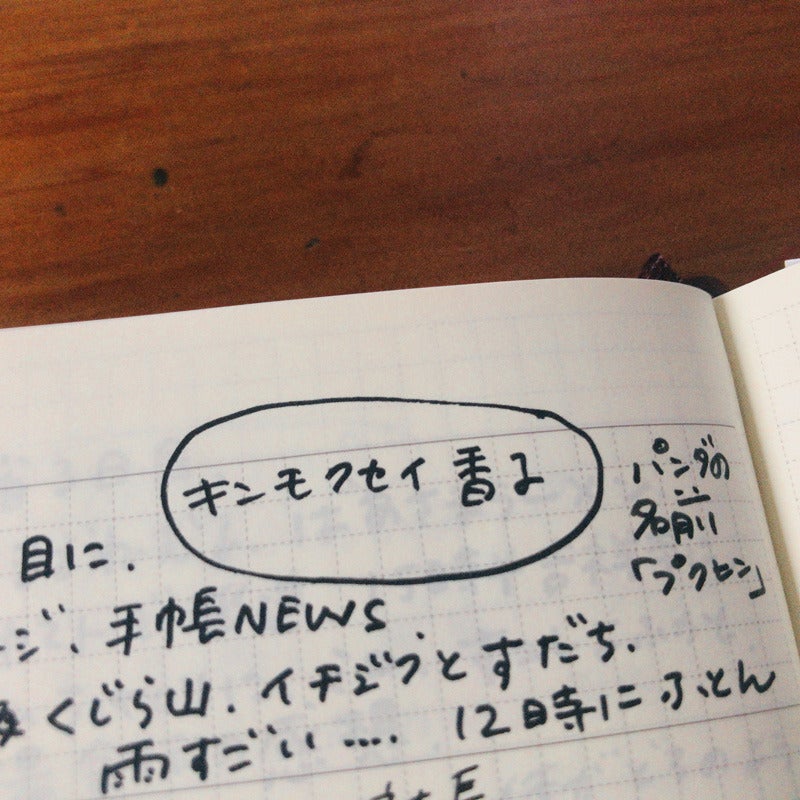 キンモクセイ 香る
パンダの
名前
「プクヒン」
目に、
ージ、手帳NEWS、
くじら山、イチジクとすだち、
雨すごい…. 12時にふとん